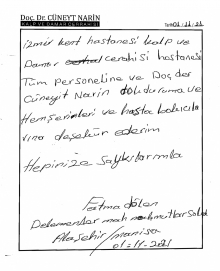 Doç. Dr. CÜNEYT NARİN
KALP VE DAMAR CERRAHİSİ
Tarih 01/11/21
izmir kent hastanesi kalp ve
Damar cerahisi hastanesi
Tüm personeline ve Doç der
Cüneyit Narin dokduruma ve
Hemşerimleri ve hasta bakıcıla
rına deşekür ederim
Hepinize Saykılarımla
Fatma dölen
mah
Alaşehir/manisa
01-11-2021